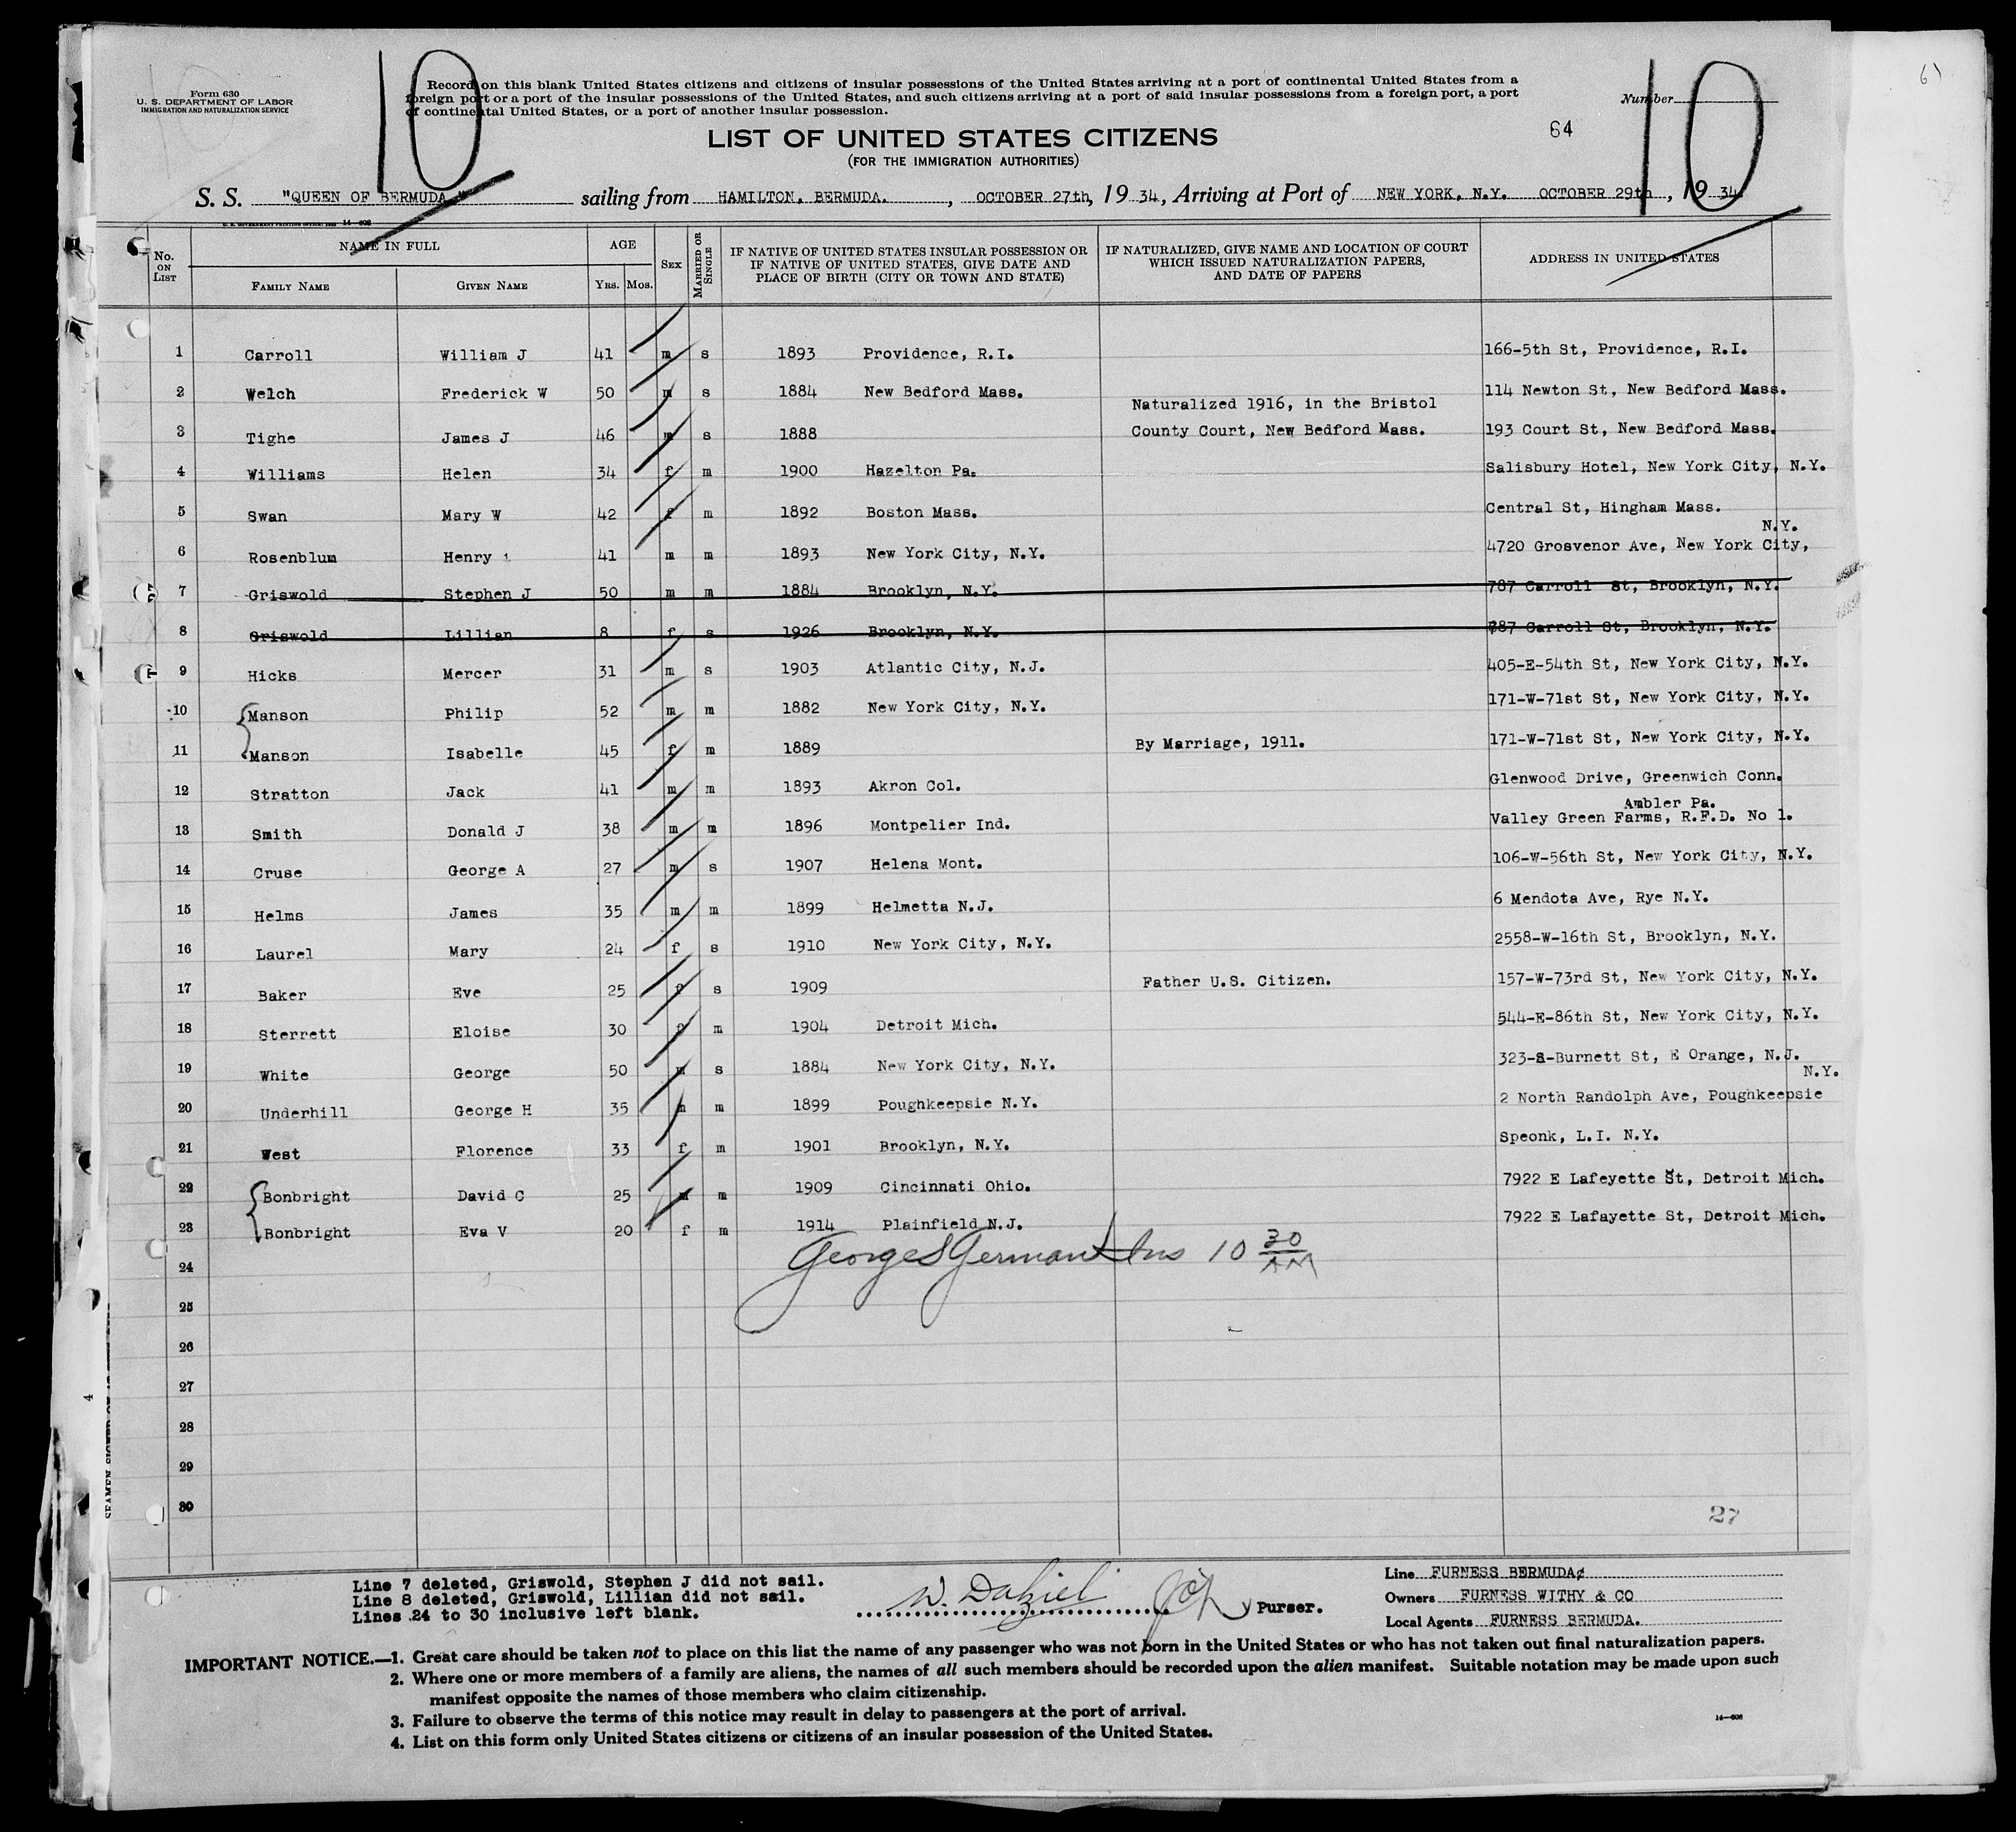 10
10
61
Form 630
U. S. DEPARTMENT OF LABOR
IMMIGRATION AND NATURALIZATION SERVICE
Record on this blank United States citizens and citizens of insular possessions of the United States arriving at a port of continental United States from a
foreign port or a port of the insular possessions of the United States, and such citizens arriving at a port of said insular possessions from a foreign port, a port
of continental United States, or a port of another insular possession.
Number
LIST OF UNITED STATES CITIZENS
64
(FOR THE IMMIGRATION AUTHORITIES)
S. S. "QUEEN OF BERMUDA" sailing from HAMILTON, BERMUDA. , OCTOBER 27th, 19 34, Arriving at Port of NEW YORK, N.Y. OCTOBER 29th, 19 34.
U. S. GOVERNMENT PRINTING OFFICE: 14—608
No. ON LIST NAME IN FULL AGE SEX MARRIED OR SINGLE IF NATIVE OF UNITED STATES INSULAR POSSESSION OR IF NATIVE OF UNITED STATES, GIVE DATE AND PLACE OF BIRTH (CITY OR TOWN AND STATE) IF NATURALIZED, GIVE NAME AND LOCATION OF COURT WHICH ISSUED NATURALIZATION PAPERS, AND DATE OF PAPERS ADDRESS IN UNITED STATES
FAMILY NAME GIVEN NAME YRS. MOS.
1 Carroll William J 41 m s 1893 Providence, R.I. 166-5th St, Providence, R.I.
2 Welch Frederick W 50 m s 1884 New Bedford Mass. 114 Newton St, New Bedford Mass.
Naturalized 1916, in the Bristol
3 Tighe James J 46 m s 1888 County Court, New Bedford Mass. 193 Court St, New Bedford Mass.
4 Williams Helen 34 f m 1900 Hazelton Pa. Salisbury Hotel, New York City, N.Y.
5 Swan Mary W 42 f m 1892 Boston Mass. Central St, Hingham Mass.
N.Y.
6 Rosenblum Henry 41 m m 1893 New York City, N.Y. 4720 Grosvenor Ave, New York City,
7 Griswold Stephen J 50 m m 1884 Brooklyn, N.Y. 787 Carroll St, Brooklyn, N.Y.
8 Griswold Lillian 8 f s 1926 Brooklyn, N.Y. 787 Carroll St, Brooklyn, N.Y.
9 Hicks Mercer 31 m s 1903 Atlantic City, N.J. 405-E-54th St, New York City, N.Y.
10 Manson Philip 52 m m 1882 New York City, N.Y. 171-W-71st St, New York City, N.Y.
11 Manson Isabelle 45 f m 1889 By Marriage, 1911. 171-W-71st St, New York City, N.Y.
12 Stratton Jack 41 m m 1893 Akron Col. Glenwood Drive, Greenwich Conn.
Ambler Pa.
13 Smith Donald J 38 m m 1896 Montpelier Ind. Valley Green Farms, R.F.D. No 1.
14 Cruse George A 27 m s 1907 Helena Mont. 106-W-56th St, New York City, N.Y.
15 Helms James 35 m m 1899 Helmetta N.J. 6 Mendota Ave, Rye N.Y.
16 Laurel Mary 24 f s 1910 New York City, N.Y. 2558-W-16th St, Brooklyn, N.Y.
17 Baker Eve 25 f s 1909 Father U.S. Citizen. 157-W-73rd St, New York City, N.Y.
18 Sterrett Eloise 30 f m 1904 Detroit Mich. 544-E-86th St, New York City, N.Y.
19 White George 50 m s 1884 New York City, N.Y. 323-S-Burnett St, E Orange, N.J.
N.Y.
20 Underhill George H 35 m m 1899 Poughkeepsie N.Y. 2 North Randolph Ave, Poughkeepsie
21 West Florence 33 f m 1901 Brooklyn, N.Y. Speonk, L.I. N.Y.
22 Bonbright David C 25 m m 1909 Cincinnati Ohio. 7922 E Lafeyette St, Detroit Mich.
23 Bonbright Eva V 20 f m 1914 Plainfield N.J. 7922 E Lafayette St, Detroit Mich.
24 George S German Ins 10 30 AM
25
26
27
28
29
30
27
Line 7 deleted, Griswold, Stephen J did not sail.
Line 8 deleted, Griswold, Lillian did not sail.
Lines 24 to 30 inclusive left blank.
W. Dalziel Purser.
Line FURNESS BERMUDA
Owners FURNESS WITHY & CO
Local Agents FURNESS BERMUDA.
IMPORTANT NOTICE.—1. Great care should be taken not to place on this list the name of any passenger who was not born in the United States or who has not taken out final naturalization papers.
2. Where one or more members of a family are aliens, the names of all such members should be recorded upon the alien manifest. Suitable notation may be made upon such
manifest opposite the names of those members who claim citizenship.
3. Failure to observe the terms of this notice may result in delay to passengers at the port of arrival.
4. List on this form only United States citizens or citizens of an insular possession of the United States.
14—608
4